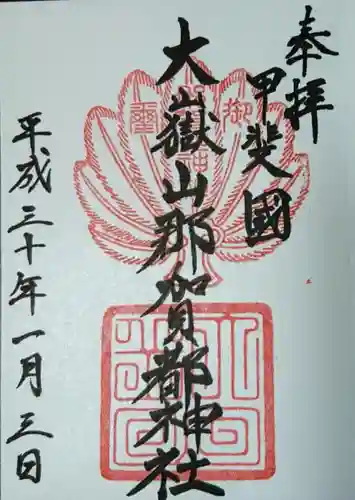 奉拝
甲斐國
大嶽山那賀都神社
平成三十年一月三日